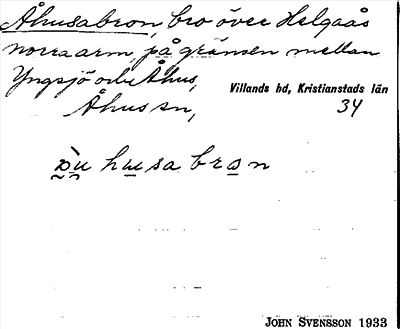 Åhusabron, bro över Helgaås
norra arm, på gränsen mellan
Yngsjö och Åhus,
Åhus sn,
Villands hd, Kristianstads län
34
husabron
JOHN SVENSSON 1933